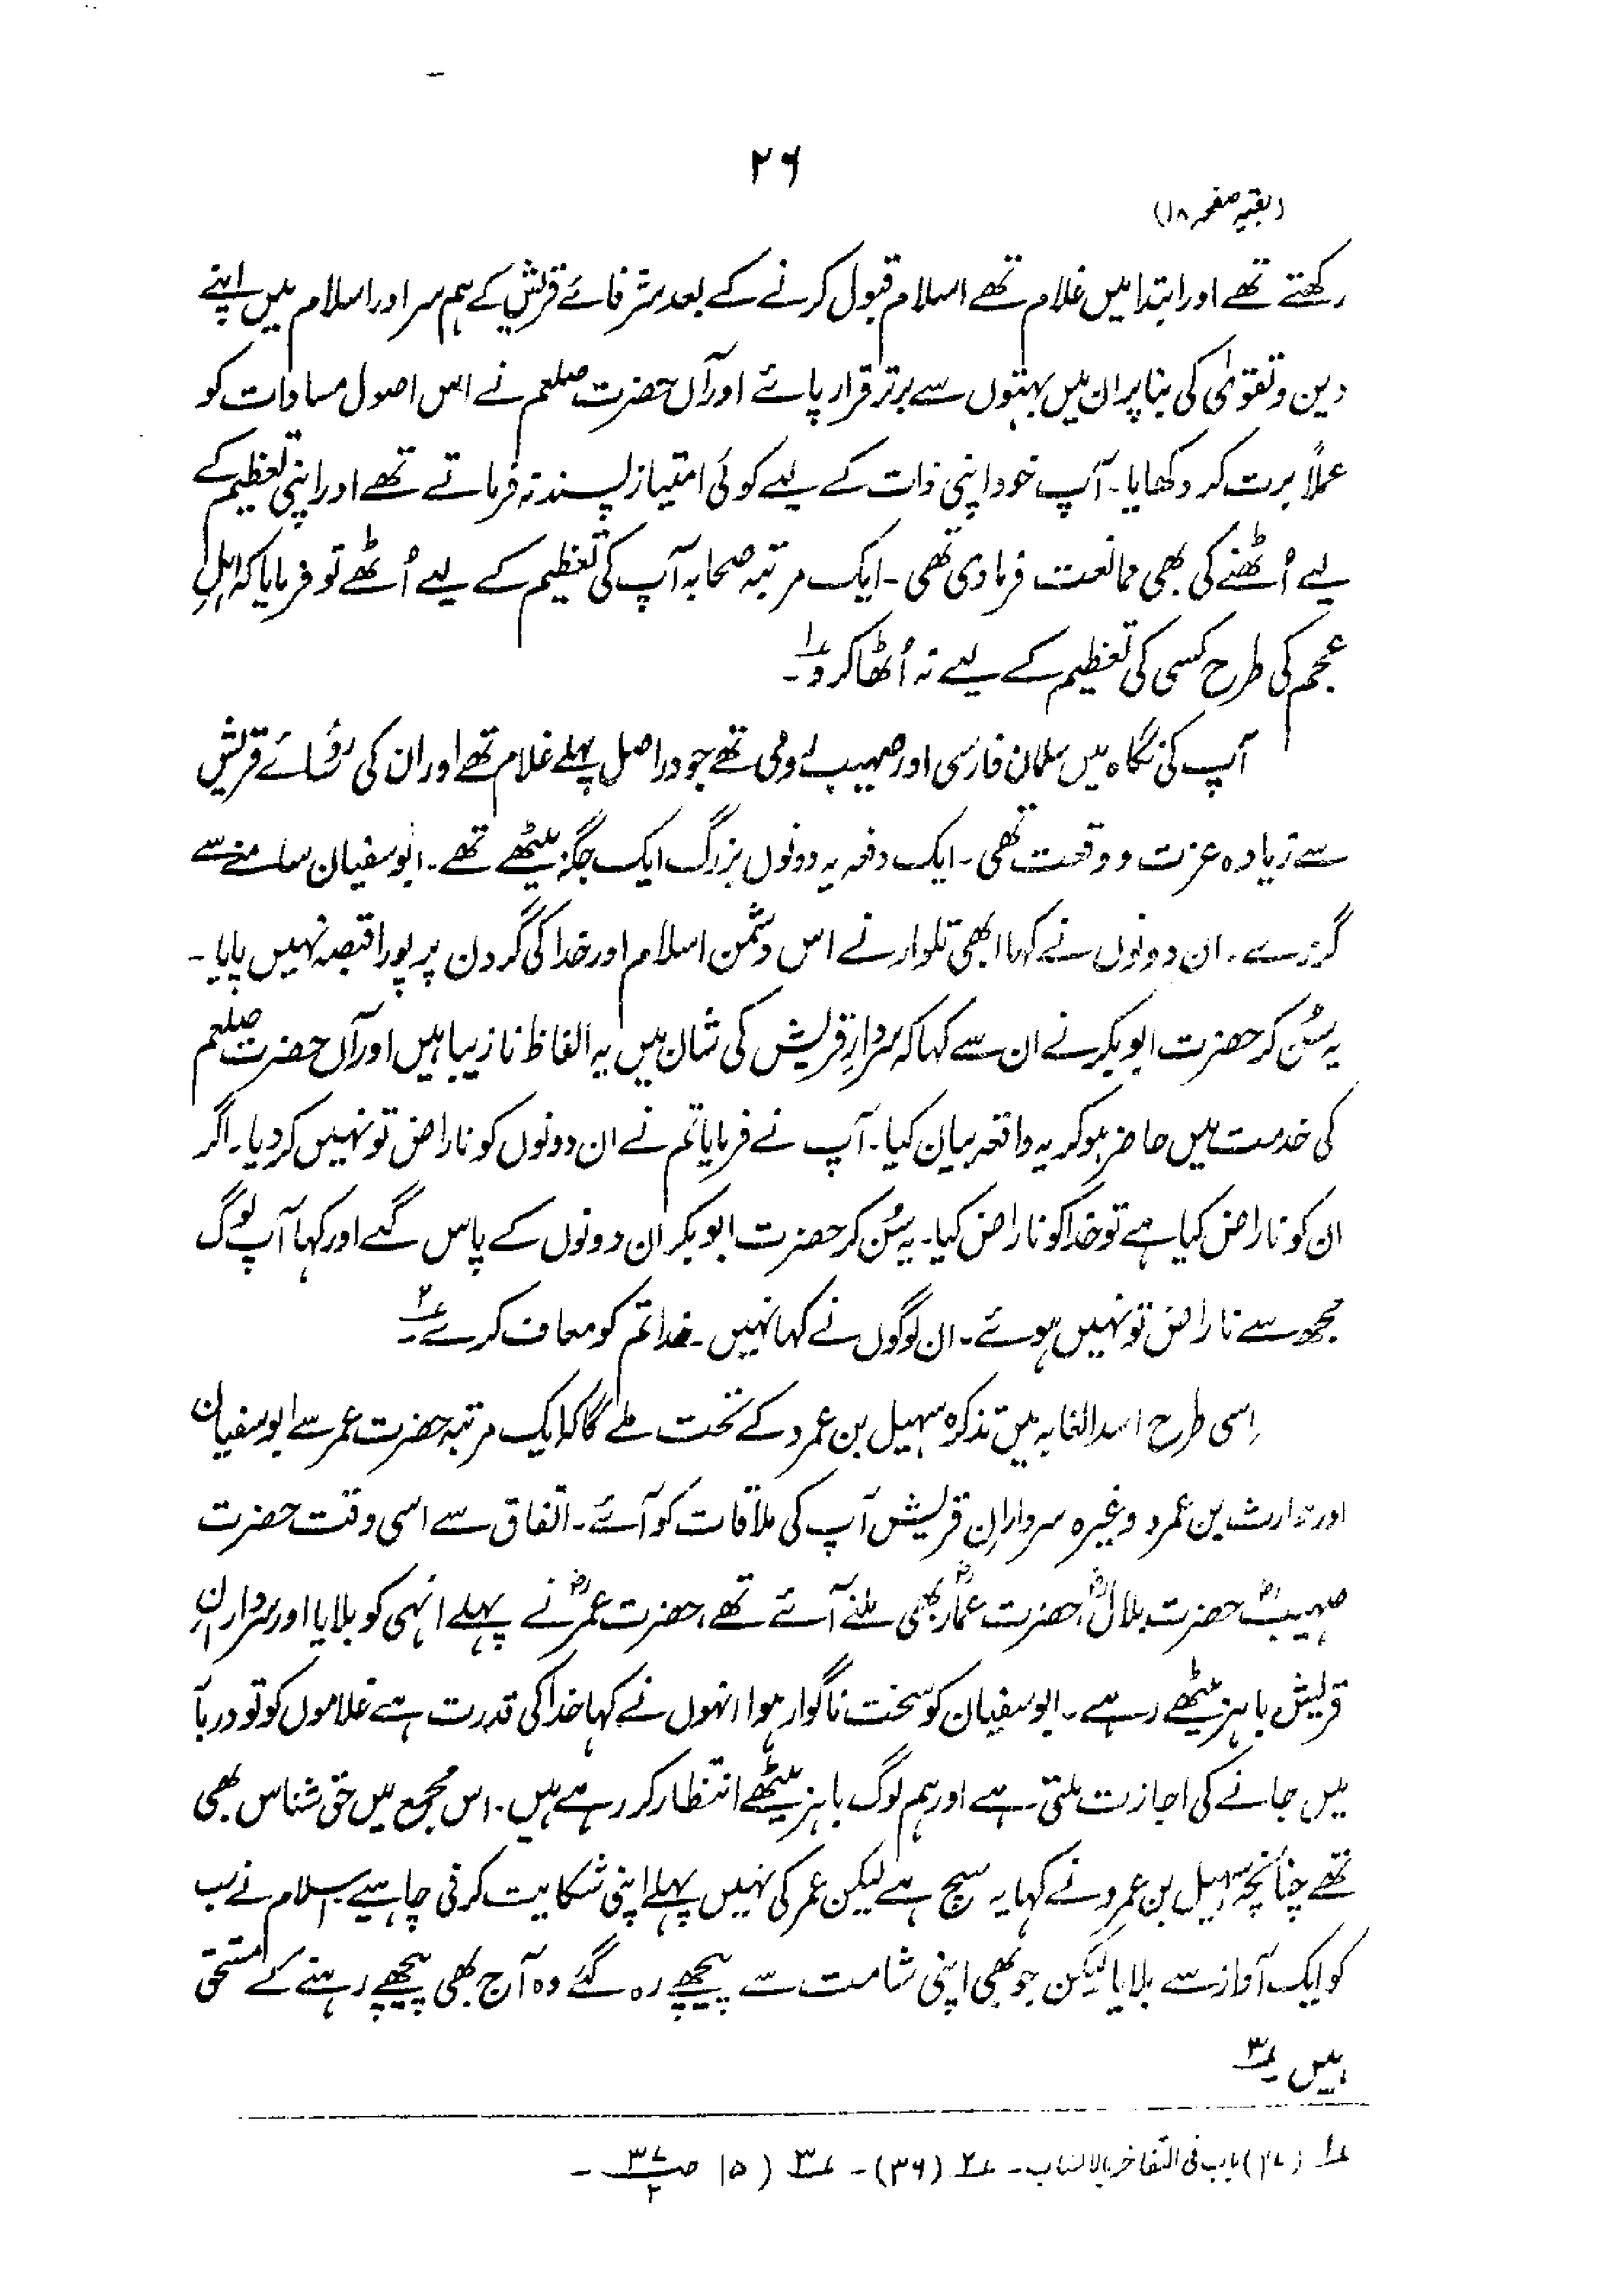 ۲۶
(بقیہ صفحہ ۱۸)
رکھتے تھے اور ابتدا میں غلام تھے اسلام قبول کرنے کے بعد شرفائے قریش کے ہم سر اور اسلام میں اپنے
دین و تقویٰ کی بنا پر ان میں بہتوں سے برتر قرار پائے اور آں حضرت صلعم نے اس اصول مساوات کو
عملاً برت کر دکھایا۔ آپ خود اپنی ذات کے لیے کوئی امتیاز پسند نہ فرماتے تھے اور اپنی تعظیم کے
لیے اُٹھنے کی بھی ممانعت فرمادی تھی۔ ایک مرتبہ صحابہ آپ کی تعظیم کے لیے اُٹھے تو فرمایا کہ اہلِ
عجم کی طرح کسی کی تعظیم کے لیے نہ اُٹھا کرو۱؎۔
آپ کی نگاہ میں سلمان فارسی اور صہیب رومی تھے جو دراصل پہلے غلام تھے اور ان کی رؤسائے قریش
سے زیادہ عزت و وقعت تھی۔ ایک دفعہ یہ دونوں بزرگ ایک جگہ بیٹھے تھے۔ ابوسفیان سامنے سے
گزرے۔ ان دونوں نے کہا ابھی تلوار نے اس دشمن اسلام اور خدا کی گردن پر پورا قبضہ نہیں پایا۔
یہ سُن کر حضرت ابوبکر نے ان سے کہا کہ سردارِ قریش کی شان میں یہ الفاظ نازیبا ہیں اور آں حضرت صلعم
کی خدمت میں حاضر ہوکر یہ واقعہ بیان کیا۔ آپ نے فرمایا تم نے ان دونوں کو ناراض تو نہیں کردیا۔ اگر
ان کو ناراض کیا ہے تو خدا کو ناراض کیا۔ یہ سُن کر حضرت ابوبکر ان دونوں کے پاس گئے اور کہا آپ لوگ
مجھ سے ناراض تو نہیں ہوئے۔ ان لوگوں نے کہا نہیں۔ خدا تم کو معاف کرے۲؎۔
اِسی طرح اسدالغابہ میں تذکرہ سہیل بن عمرو کے تحت ملے گا کہ ایک مرتبہ حضرت عمر سے ابوسفیان
اور حارث بن عمرو وغیرہ سردارانِ قریش آپ کی ملاقات کو آئے۔ اتفاق سے اسی وقت حضرت
صہیبؓ حضرت بلالؓ، حضرت عمارؓ بھی ملنے آئے تھے، حضرت عمرؓ نے پہلے انہی کو بلایا اور سردارانِ
قریش باہر بیٹھے رہے۔ ابوسفیان کو سخت ناگوار ہوا انہوں نے کہا خدا کی قدرت ہے غلاموں کو تو دربار
میں جانے کی اجازت ملتی ہے اور ہم لوگ باہر بیٹھے انتظار کر رہے ہیں۔ اس مجمع میں حق شناس بھی
تھے چنانچہ سہیل بن عمرو نے کہا یہ سچ ہے لیکن عمر کی نہیں پہلے اپنی شکایت کرنی چاہیے اسلام نے سب
کو ایک آواز سے بلایا لیکن جو بھی اپنی شامت سے پیچھے رہ گئے وہ آج بھی پیچھے رہنے کے مستحق
ہیں ۳؎
۱؎ باب فی التفاخر بالانساب۔ ۲؎ (۳۶)۔ ۳؎ (۱۵ ص